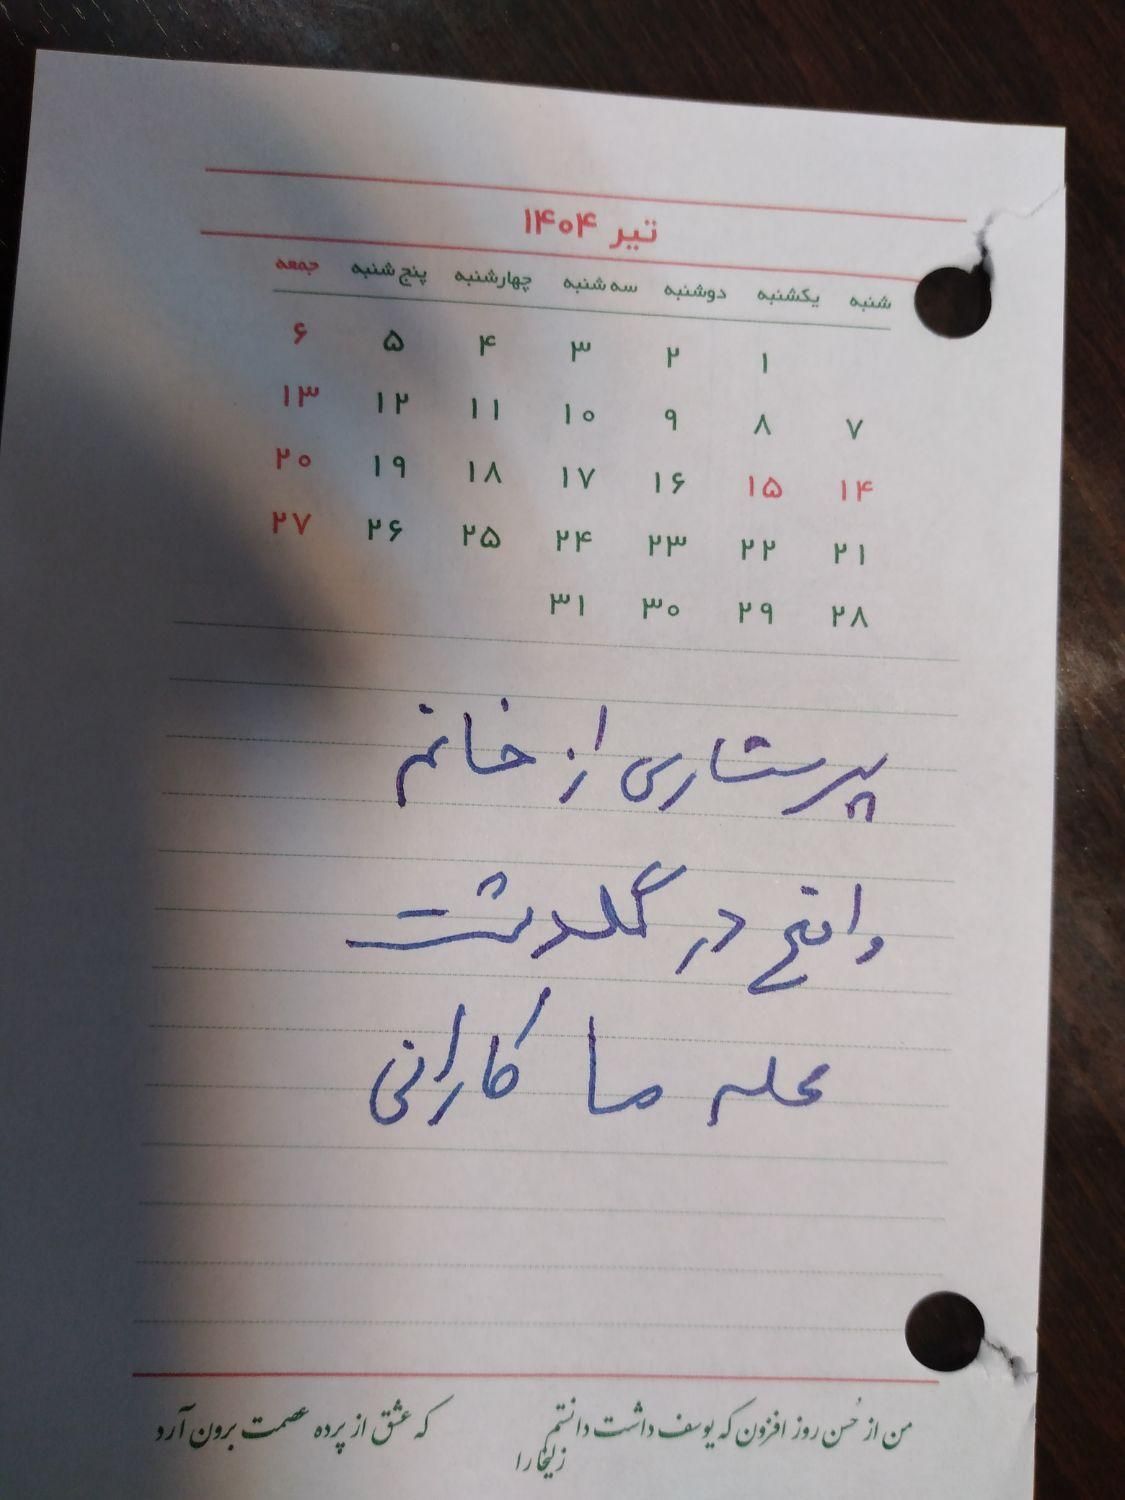 تیر ۱۴۰۴
شنبه یکشنبه دوشنبه سه شنبه چهارشنبه پنج شنبه جمعه
۱ ۲ ۳ ۴ ۵ ۶
۷ ۸ ۹ ۱۰ ۱۱ ۱۲ ۱۳
۱۴ ۱۵ ۱۶ ۱۷ ۱۸ ۱۹ ۲۰
۲۱ ۲۲ ۲۳ ۲۴ ۲۵ ۲۶ ۲۷
۲۸ ۲۹ ۳۰ ۳۱
پرستاری از خانم
واقع در گلدشت
محله ما کارانی
من از حُسن روز افزون که یوسف داشت دانستم که عشق از پرده عصمت برون آرد
زلیخا را